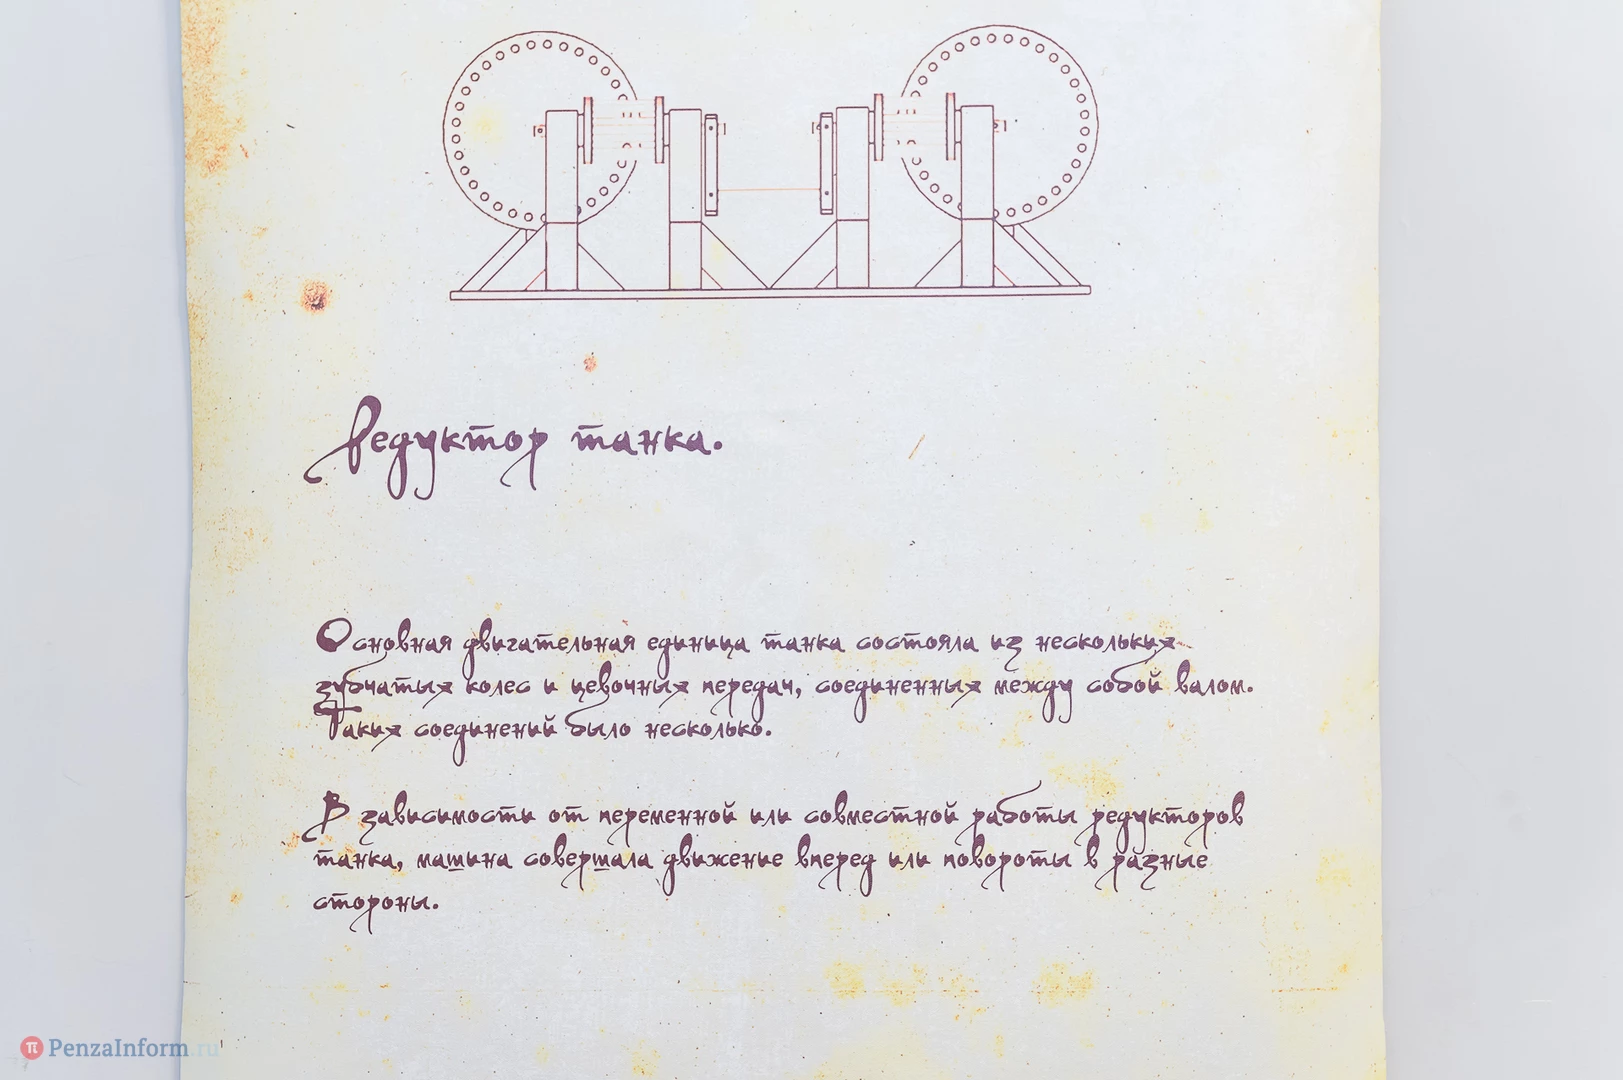 Редуктор танка.
Основная двигательная единица танка состояла из нескольких
зубчатых колес и цевочных передач, соединенных между собой валом.
Таких соединений было несколько.
В зависимости от переменной или совместной работы редукторов
танка, машина совершала движение вперед или повороты в разные
стороны.
PenzaInform.ru